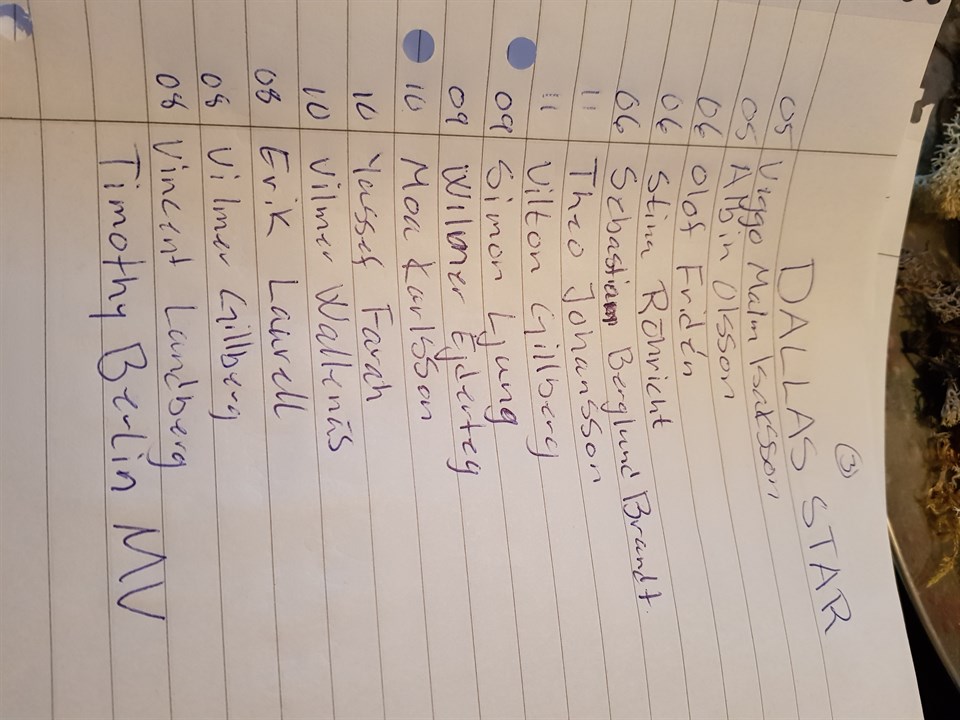 ③
DALLAS STAR
05 Viggo Malm Isaksson
05 Albin Olsson
06 Olof Fridén
06 Stina Röhricht
06 Sebastian Berglund Brandt.
11 Theo Johansson
11 Vilton Gillberg
09 Simon Ljung
09 Wilmer Ejderteg
10 Moa Karlsson
10 Yassef Farah
10 Vilmer Wallenäs
08 Erik Laurell
08 Vilmer Gillberg
08 Vincent Landberg
Timothy Berlin MV